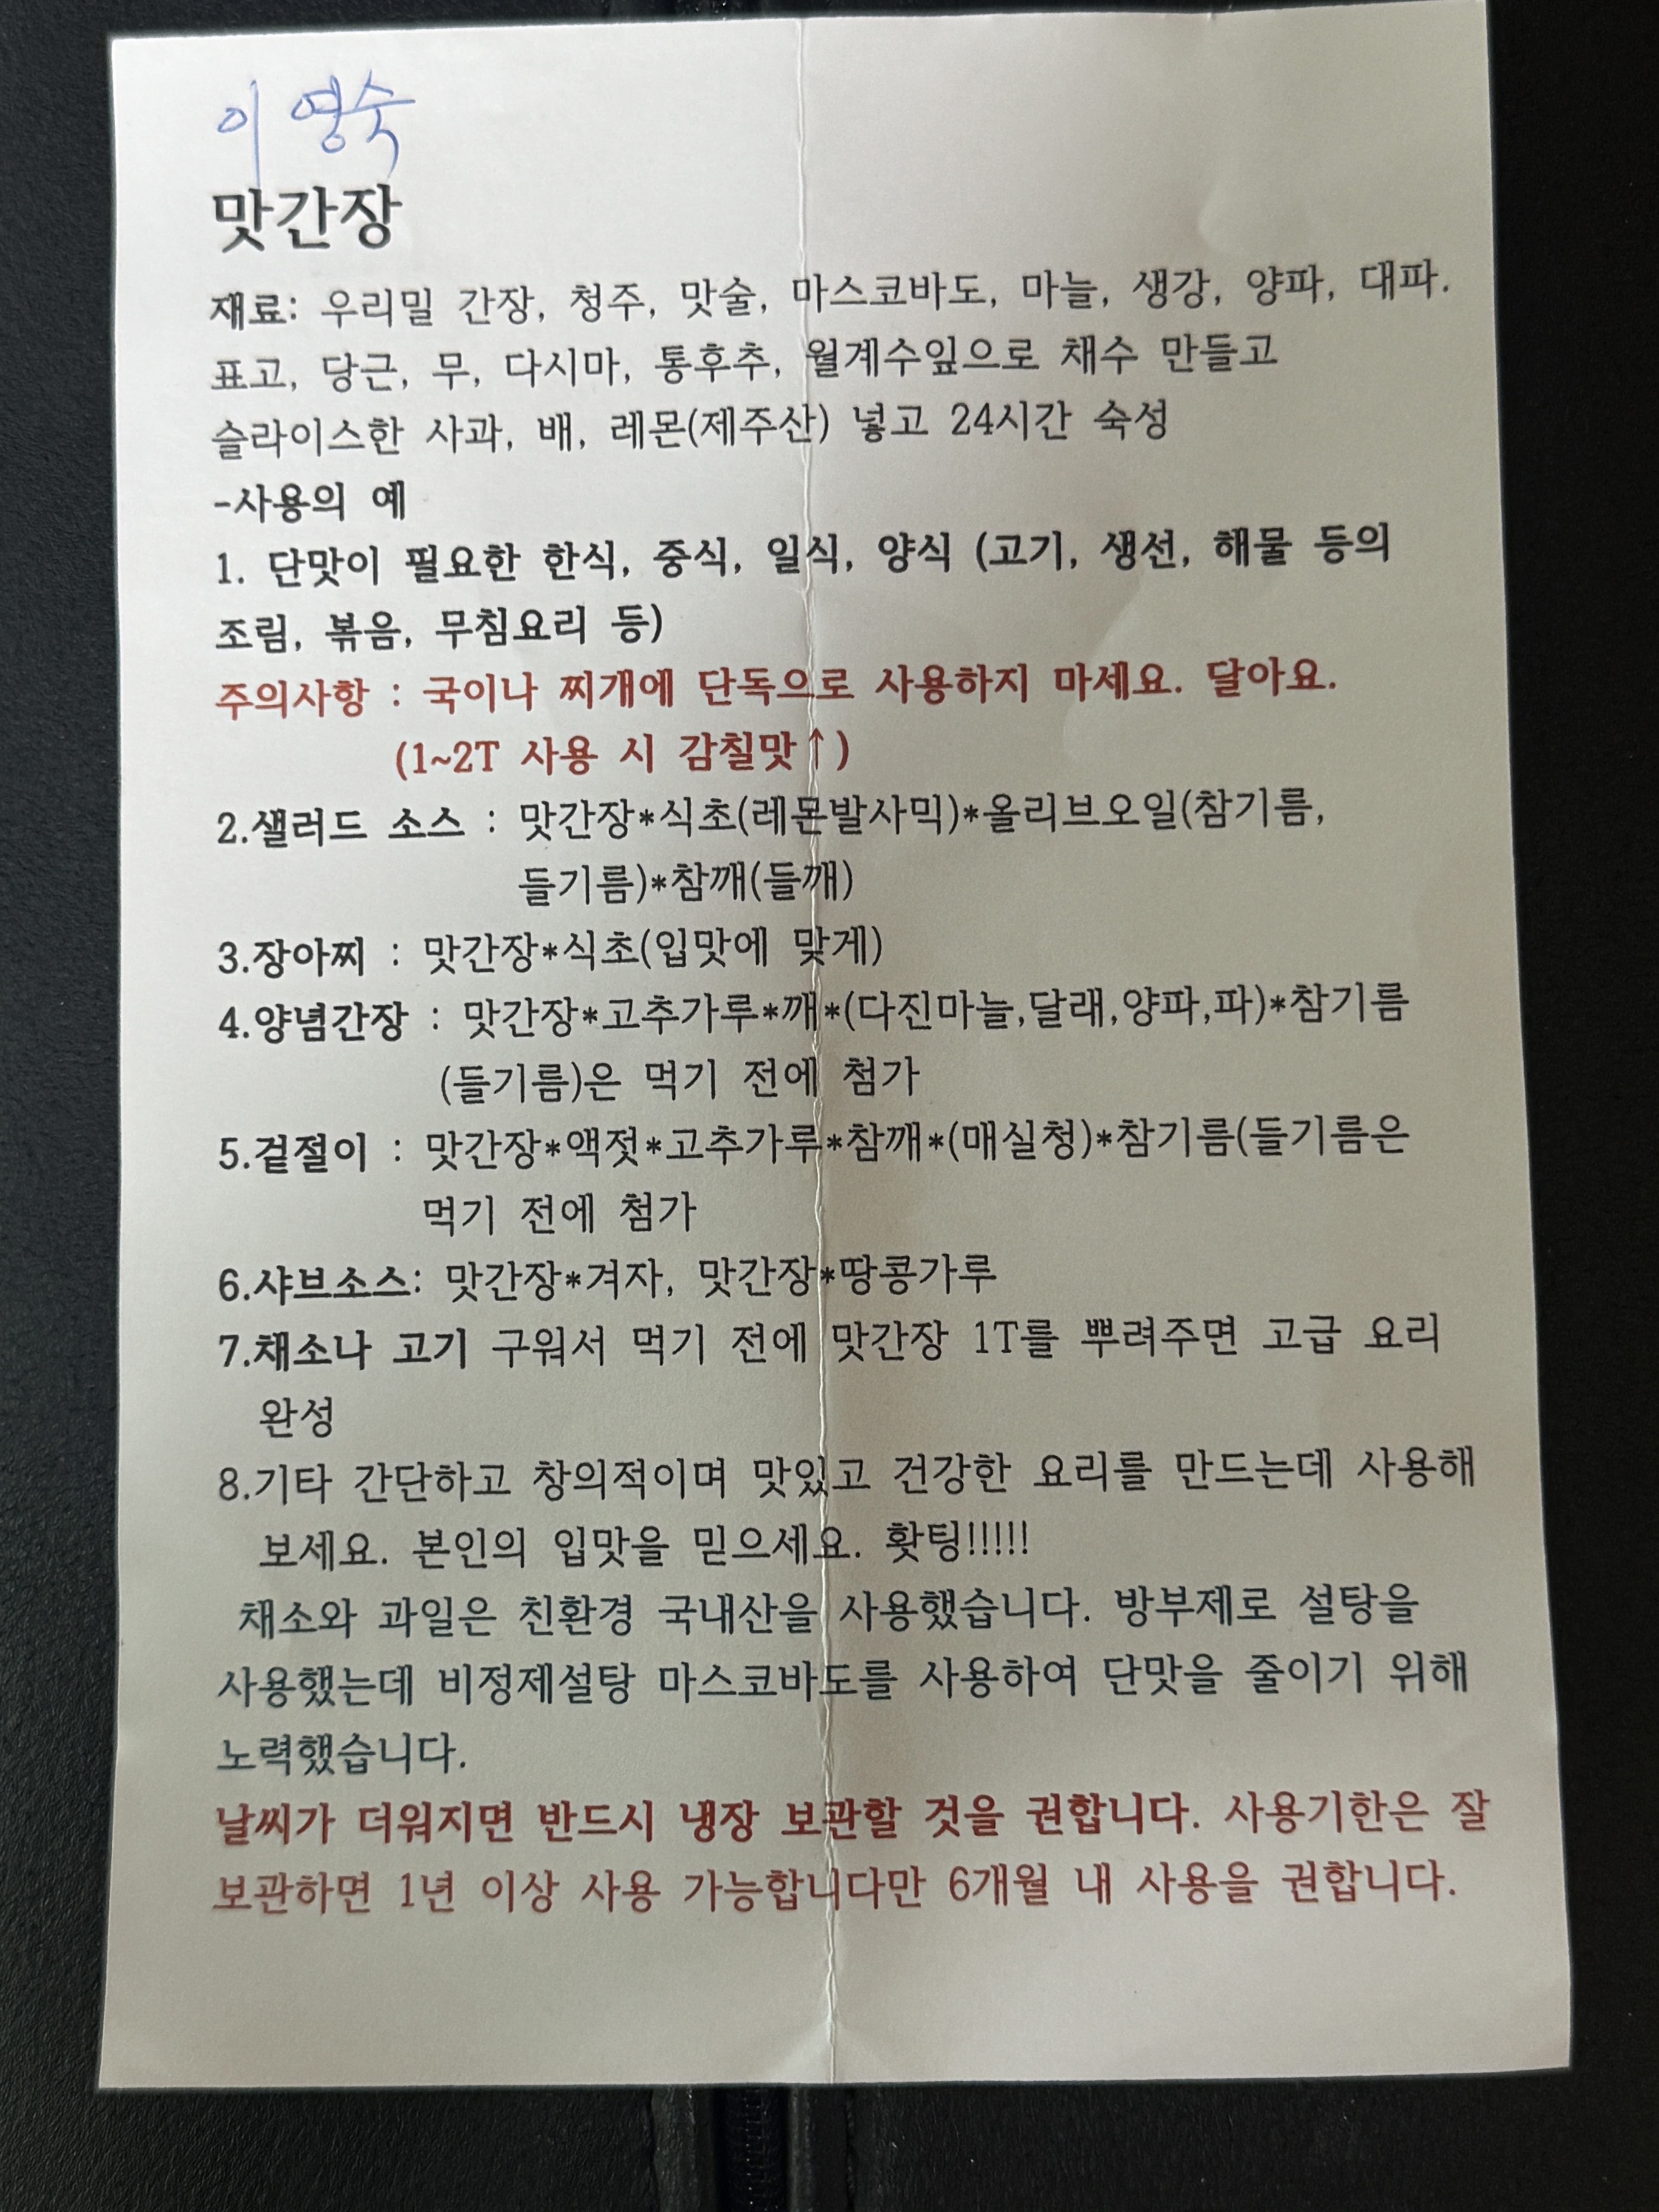 이영숙
맛간장
재료: 우리밀 간장, 청주, 맛술, 마스코바도, 마늘, 생강, 양파, 대파.
표고, 당근, 무, 다시마, 통후추, 월계수잎으로 채수 만들고
슬라이스한 사과, 배, 레몬(제주산) 넣고 24시간 숙성
-사용의 예
1. 단맛이 필요한 한식, 중식, 일식, 양식 (고기, 생선, 해물 등의
조림, 볶음, 무침요리 등)
주의사항 : 국이나 찌개에 단독으로 사용하지 마세요. 달아요.
(1~2T 사용 시 감칠맛↑)
2.샐러드 소스 : 맛간장*식초(레몬발사믹)*올리브오일(참기름,
들기름)*참깨(들깨)
3.장아찌 : 맛간장*식초(입맛에 맞게)
4.양념간장 : 맛간장*고추가루*깨*(다진마늘,달래,양파,파)*참기름
(들기름)은 먹기 전에 첨가
5.겉절이 : 맛간장*액젓*고추가루*참깨*(매실청)*참기름(들기름은
먹기 전에 첨가
6.샤브소스: 맛간장*겨자, 맛간장*땅콩가루
7.채소나 고기 구워서 먹기 전에 맛간장 1T를 뿌려주면 고급 요리
완성
8.기타 간단하고 창의적이며 맛있고 건강한 요리를 만드는데 사용해
보세요. 본인의 입맛을 믿으세요. 홧팅!!!!!
채소와 과일은 친환경 국내산을 사용했습니다. 방부제로 설탕을
사용했는데 비정제설탕 마스코바도를 사용하여 단맛을 줄이기 위해
노력했습니다.
날씨가 더워지면 반드시 냉장 보관할 것을 권합니다. 사용기한은 잘
보관하면 1년 이상 사용 가능합니다만 6개월 내 사용을 권합니다.